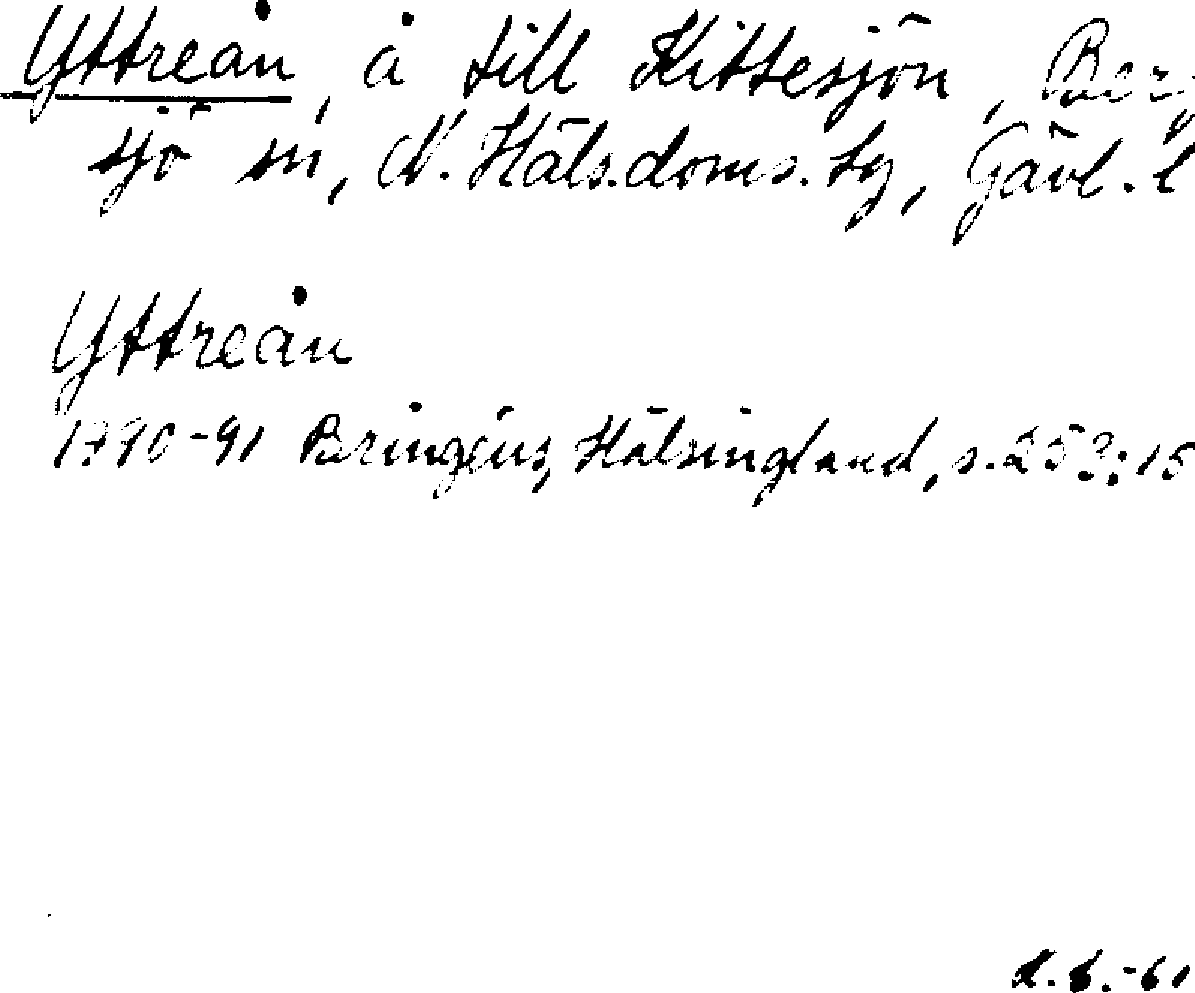 Yttreån, å till Kittesjön, Berg
sjö sn, N. Häls.doms.tg, Gävl. l
Yttreån
1790-91 Bringéus, Hälsingland, s. 253:15